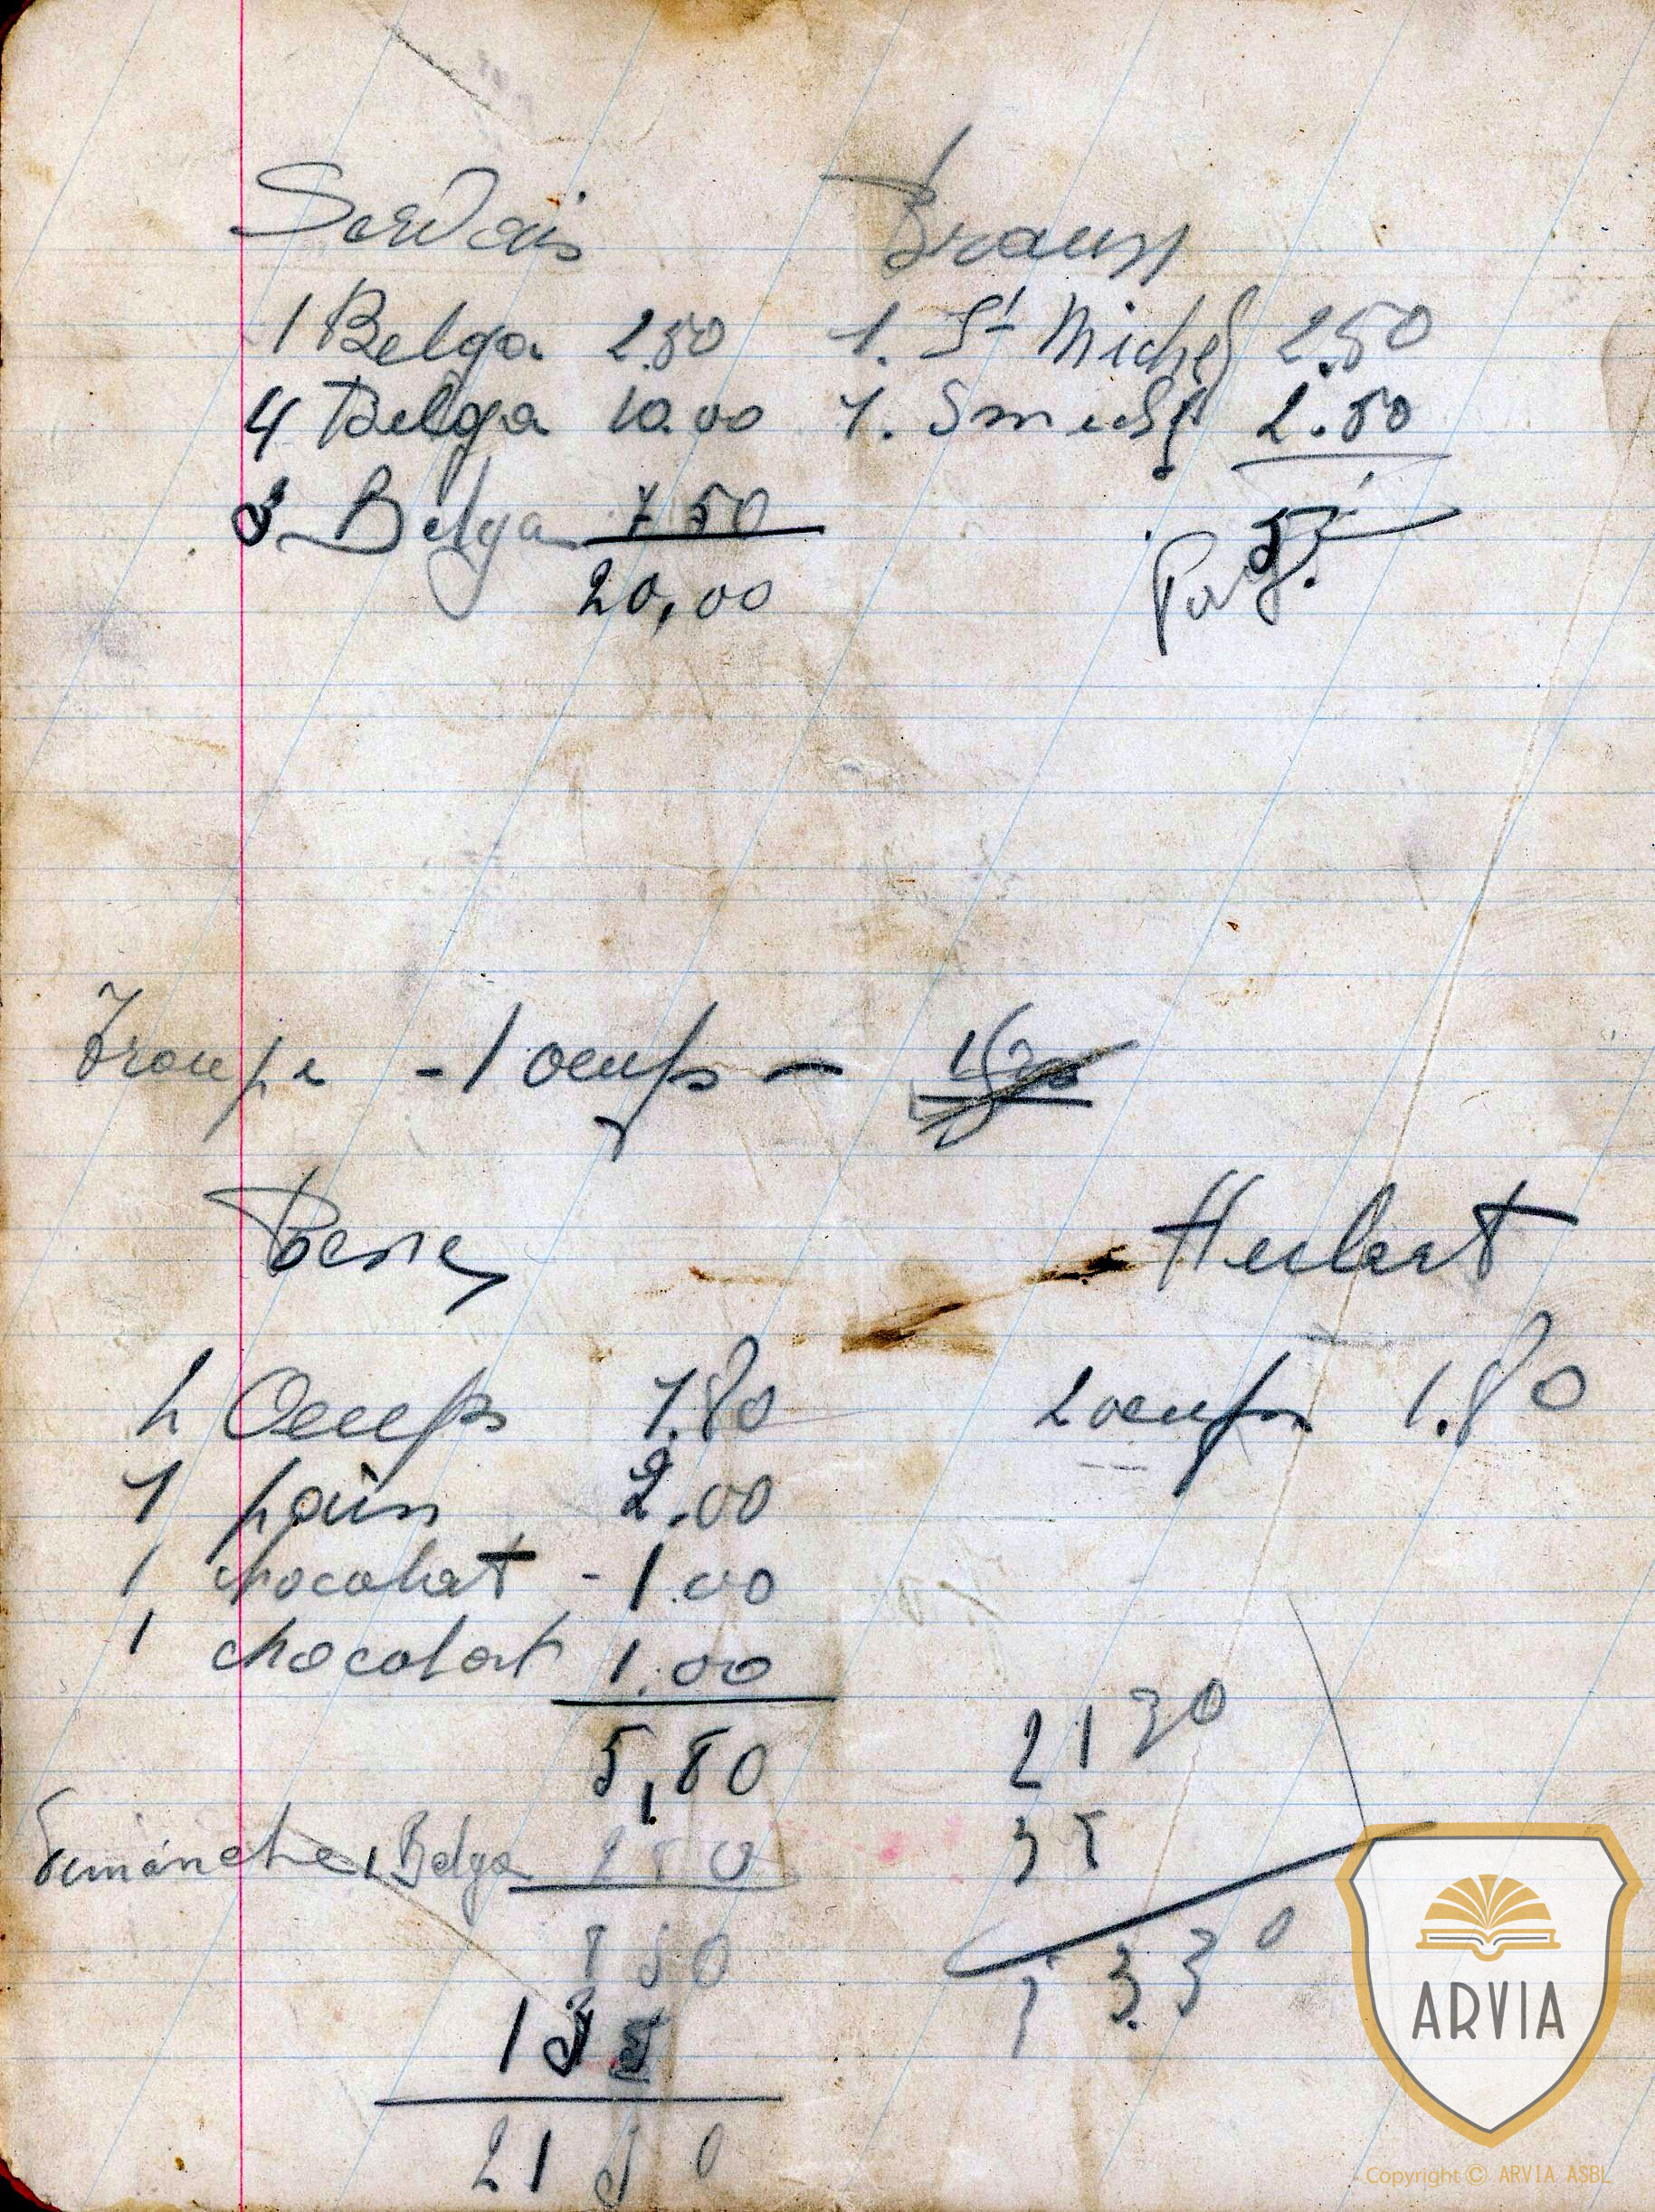 Servais
1 Belga 2.50
4 Belga 10.00
3 Belga 7 50
20,00
1. St Michel 2.50
1. 2.50
5
Troupe - 1 oeufs -
2 Oeufs 1.80
1 pain 2.00
1 chocolat - 1.00
1 chocolat 1.00
5,80
Dimanche 1 Belga 2 50
8 30
13
21 30
Hubert
2 oeufs 1.80
21 30
3 3 0
ARVIA
Copyright © ARVIA ASBL